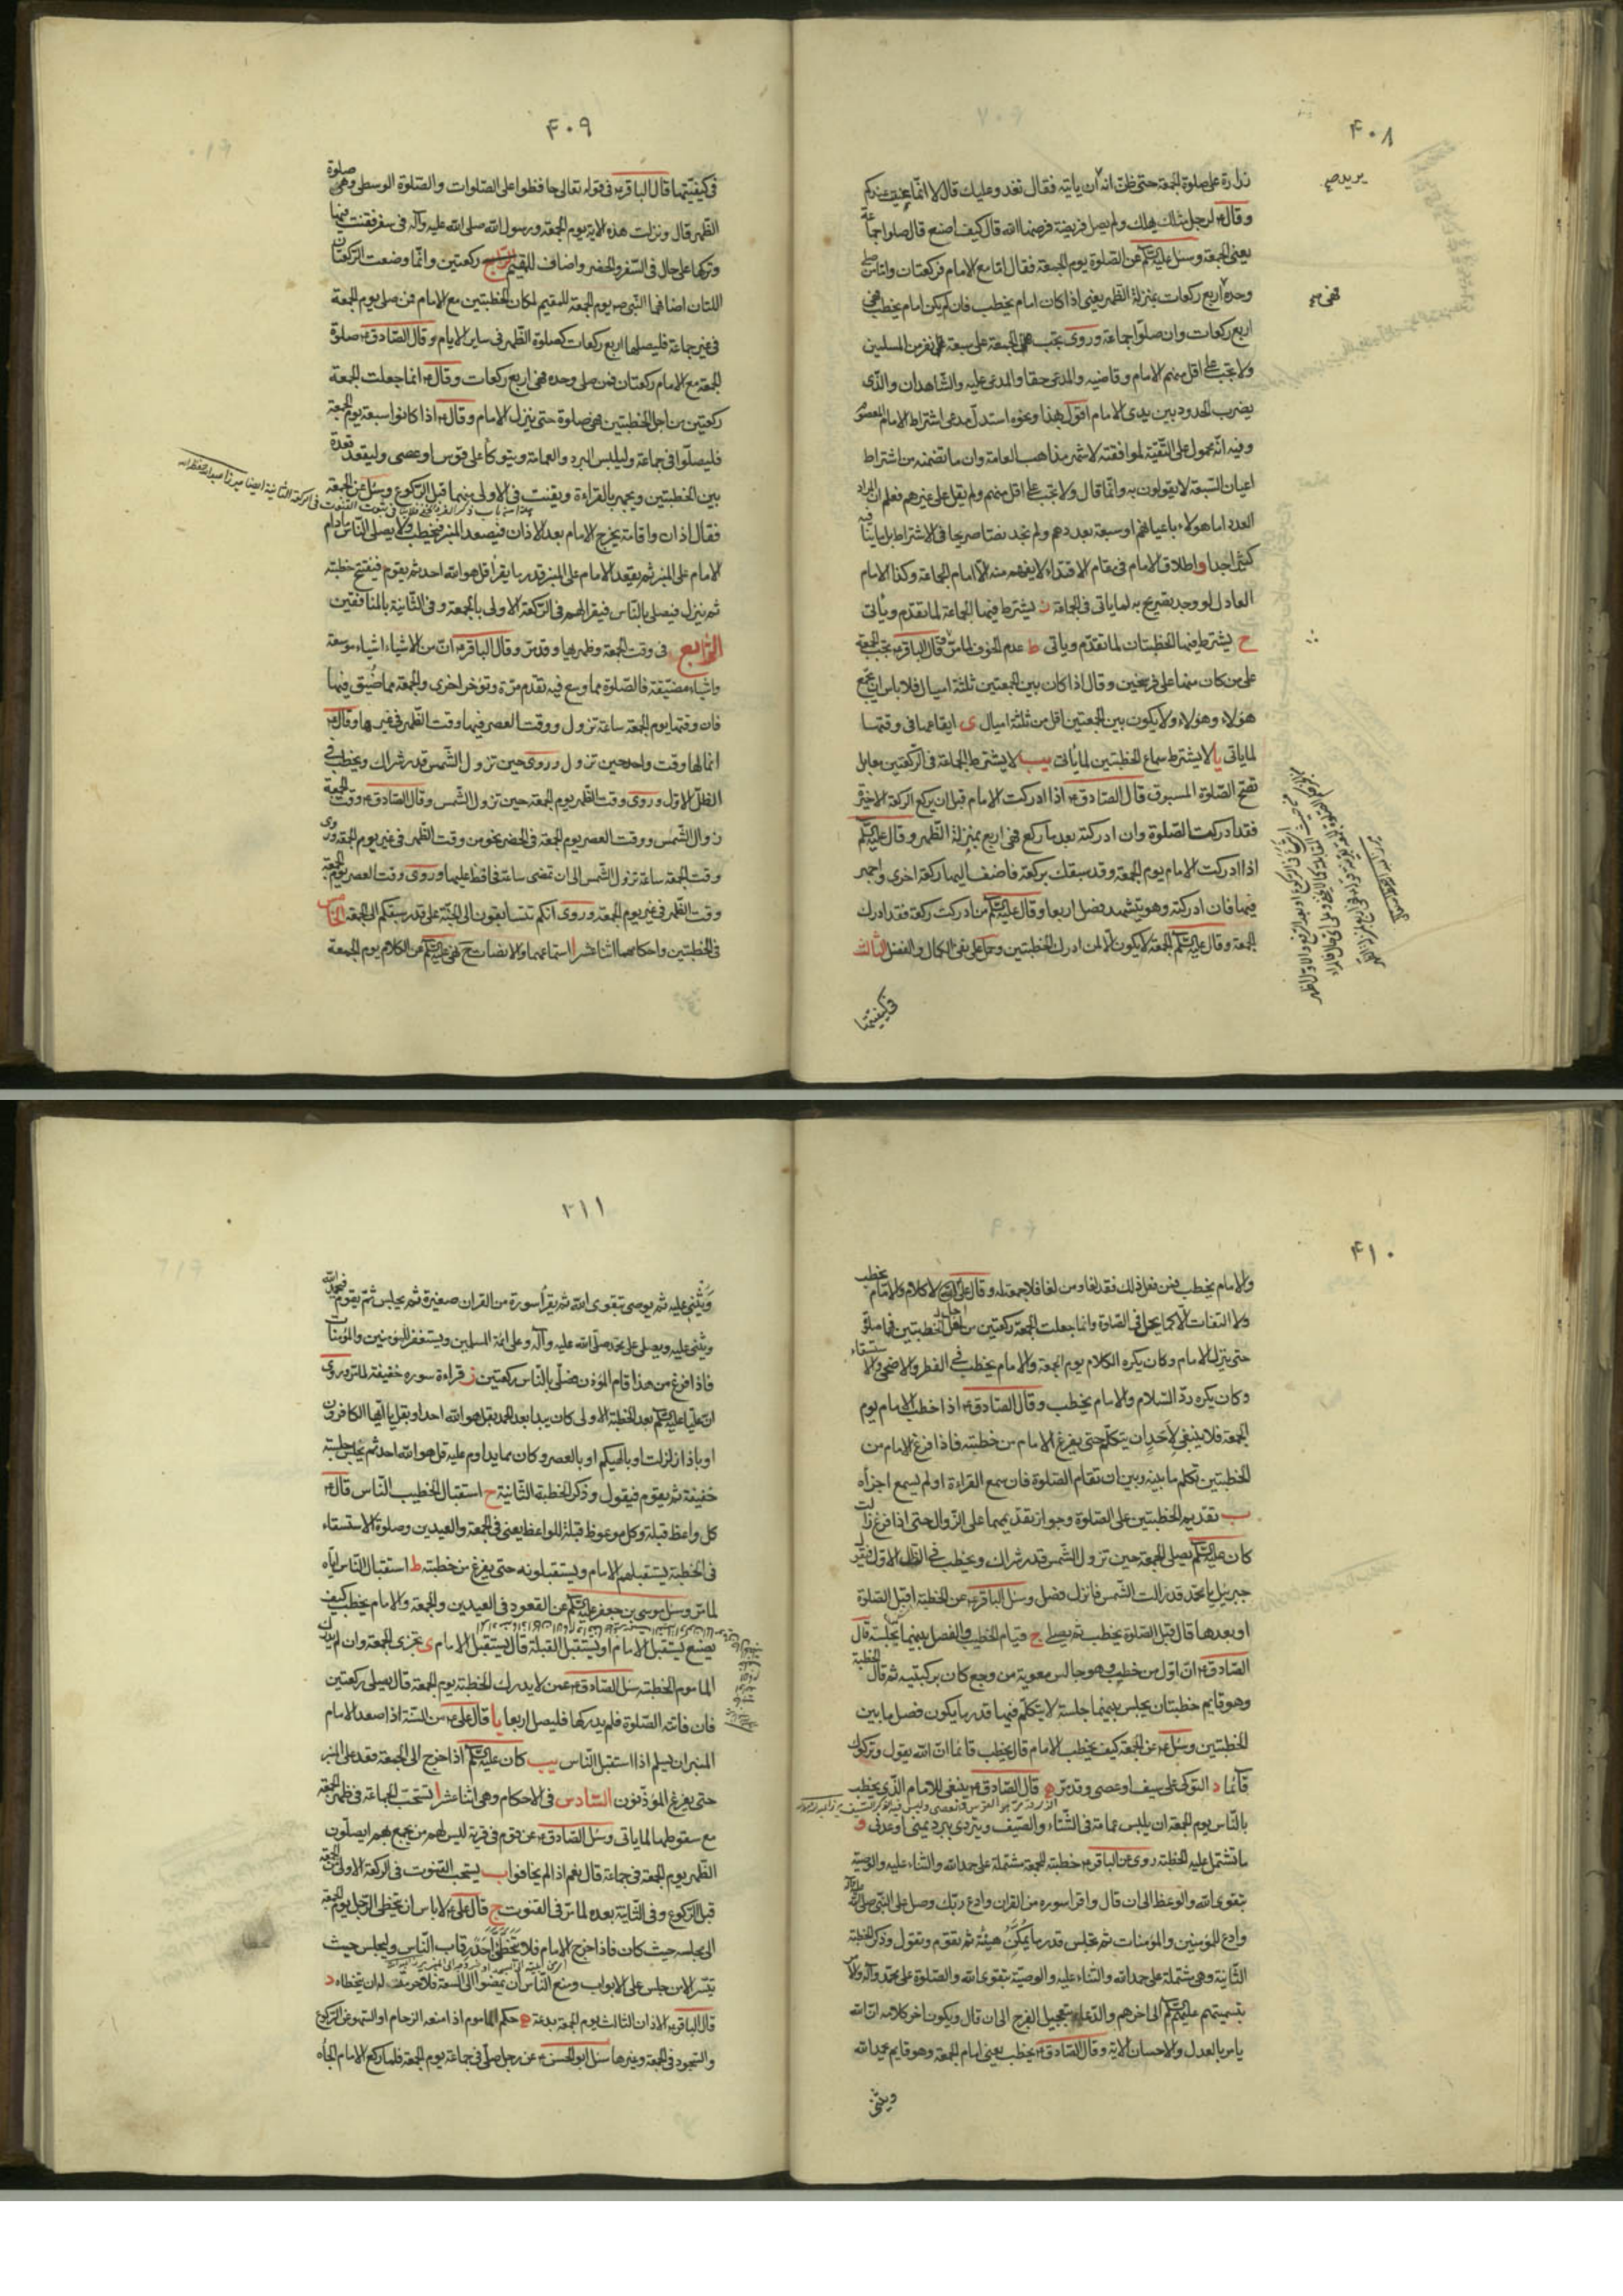 ۴۰۸
زرارة على صلوة الجمعة حتى ظننت انه ان ياتيه فقال نغدو عليك قال لا انما عنيت عندكم
وقال ع لرجل مثلك يهلك ولم يصل فريضة فرضها الله قال كيف اصنع قال صلوا جماعة
يعنى الجمعة وسئل عليه السلم عن الصلوة يوم الجمعة فقال اما مع الامام فركعتان واما من صلى
وحده اربع ركعات بمنزلة الظهر يعنى اذا كان امام يخطب فان لم يكن امام يخطب فهى
اربع ركعات وان صلوا جماعة وروى تجب الجمعة على سبعة نفر من المسلمين
ولا تجب على اقل منهم الامام وقاضيه والمدعى حقا والمدعى عليه والشاهدان والذى
يضرب الحدود بين يدى الامام اقول بهذا ونحوه استدل مدعى اشتراط الامام المعصوم
وفيه انه محمول على التقية لموافقته لاشهر مذاهب العامة وان ما تضمنه من اشتراط
اعيان السبعة لا يقولون به وانما قال ولا تجب على اقل منهم ولم يقل على غيرهم فعلم ان المراد
العدد اما هولاء باعيانهم او سبعة بعددهم ولم نجد نصا صريحا فى الاشتراط بل ما ينافيه
كثير جدا واطلاق الامام فى مقام الاقتداء لا يفهم منه الا امام الجماعة وكذا الامام
العادل لو وجد بصريح به لما ياتى فى الجماعة ز يشترط فيها الجماعة لما تقدم وياتى
ح يشترط فيها الخطبتان لما تقدم وياتى ط عدم الخوف لما مر قال الباقر ع تجب الجمعة
على من كان منها على فرسخين وقال اذا كان بين الجمعتين ثلثة اميال فلا باس ان يجمع
هؤلاء وهؤلاء ولا يكون بين الجمعتين اقل من ثلثة اميال ى ايقاعها فى وقتها
لما ياتى يا لا يشترط سماع الخطبتين لما ياتى يب لا يشترط الجماعة فى الركعتين معا بل
تصح الصلوة المسبوق قال الصادق ع اذا ادركت الامام قبل ان يركع الركعة الاخيرة
فقد ادركت الصلوة وان ادركته بعد ما ركع فهى اربع بمنزلة الظهر وقال عليه السلم
اذا ادركت الامام يوم الجمعة وقد سبقك بركعة فاضف اليها ركعة اخرى واجهر
فيها فان ادركته وهو يتشهد فصل اربعا وقال عليه السلم من ادرك ركعة فقد ادرك
الجمعة وقال عليه السلم الجمعة لا يكون الا لمن ادرك الخطبتين وحمل على نفى الكمال والفضل الثالث
فى كيفيتها
۴۰۹
فى كيفيتها قال الباقر ع فى قوله تعالى حافظوا على الصلوات والصلوة الوسطى وهى صلوة
الظهر قال ونزلت هذه الاية يوم الجمعة ورسول الله صلى الله عليه وآله فى سفر فقنت فيها
وتركها على حال فى السفر والحضر واضاف للمقيم ركعتين وانما وضعت الركعتان
اللتان اضافهما النبى ص يوم الجمعة للمقيم لمكان الخطبتين مع الامام فمن صلى يوم الجمعة
فى غير جماعة فليصلها اربع ركعات كصلوة الظهر فى ساير الايام وقال الصادق ع صلوة
الجمعة مع الامام ركعتان فمن صلى وحده فهى اربع ركعات وقال ع انما جعلت الجمعة
ركعتين من اجل الخطبتين فهى صلوة حتى ينزل الامام وقال ع اذا كانوا سبعة يوم الجمعة
فليصلوا فى جماعة وليلبس البرد والعمامة ويتوكأ على قوس او عصى وليقعد قعدة
بين الخطبتين ويجهر بالقراءة ويقنت فى الاولى منهما قبل الركوع وسئل عن الجمعة
فقال اذان واقامة يخرج الامام بعد الاذان فيصعد المنبر فيخطب ولا يصلى الناس ما دام
الامام على المنبر ثم يقعد الامام على المنبر قدر ما يقرا قل هو الله احد ثم يقوم فيفتتح خطبته
ثم ينزل فيصلى بالناس فيقرا بهم فى الركعة الاولى بالجمعة وفى الثانية بالمنافقين
الرابع فى وقت الجمعة وظهريها وقد مر وقال الباقر ع ان من الاشياء اشياء موسعة
واشياء مضيقة فالصلوة مما وسع فيه تقدم مرة وتؤخر اخرى والجمعة مما ضيق فيها
فان وقتها يوم الجمعة ساعة تزول ووقت العصر فيها وقت الظهر فى غيرها وقال ع
انما لها وقت واحد حين تزول وروى حين تزول الشمس قدر شراك ويخطب فى
الظل الاول وروى وقت الظهر يوم الجمعة حين تزول الشمس وقال الصادق ع وقت الجمعة
زوال الشمس ووقت العصر يوم الجمعة فى الحضر نحو من وقت الظهر فى غير يوم الجمعة وروى
وقت الجمعة ساعة تزول الشمس الى ان تمضى ساعة فحافظ عليها وروى وقت العصر يوم الجمعة
وقت الظهر فى غير يوم الجمعة وروى انكم تتسابقون الى الجنة على قدر سبقكم الى الجمعة الخامس
فى الخطبتين واحكامهما اثنا عشر ا استماعهما والانصات نهى عليه السلم عن الكلام يوم الجمعة
۴۱۰
والامام يخطب فمن فعل ذلك فقد لغا ومن لغا فلا جمعة له وقال على ع لا كلام والامام يخطب
ولا التفات الا كما يحل فى الصلوة وانما جعلت الجمعة ركعتين من اجل الخطبتين فهما صلوة
حتى ينزل الامام وكان يكره الكلام يوم الجمعة والامام يخطب فى الفطر والاضحى والاستسقاء
وكان يكره رد السلام والامام يخطب وقال الصادق ع اذا خطب الامام يوم
الجمعة فلا ينبغى لاحد ان يتكلم حتى يفرغ الامام من خطبته فاذا فرغ الامام من
الخطبتين تكلم ما بينه وبين ان تقام الصلوة فان سمع القراءة او لم يسمع اجزأه
ب تقديم الخطبتين على الصلوة وجواز تقديمهما على الزوال حتى اذا فرغ زالت
كان عليه السلم يصلى الجمعة حين تزول الشمس قدر شراك ويخطب فى الظل الاول فيقول
جبرئيل يا محمد قد زالت الشمس فانزل فصل وسئل الباقر ع عن الخطبة اقبل الصلوة
او بعدها قال قبل الصلوة يخطب ثم يصلى ج قيام الخطيب والفصل بينهما بجلسة قال
الصادق ع ان اول من خطب وهو جالس معوية من وجع كان بركبتيه ثم قال الخطبة
وهو قايم خطبتان يجلس بينهما جلسة لا يتكلم فيها قدر ما يكون فصل ما بين
الخطبتين وسئل ع عن الجمعة كيف يخطب الامام قال يخطب قائما ان الله يقول وتركوك
قائما د التوكى على سيف او عصى وقد مر ه قال الصادق ع ينبغى للامام الذى يخطب
بالناس يوم الجمعة ان يلبس عمامة فى الشتاء والصيف ويتردى ببرد يمنى او عدنى و
ما تشتمل عليه الخطبة روى عن الباقر ع خطبة للجمعة مشتملة على حمد الله والثناء عليه والوصية
بتقوى الله والوعظ الى ان قال واقرا سوره من القران وادع ربك وصل على النبى صلى الله عليه وآله
وادع للمؤمنين والمؤمنات ثم تجلس قدر ما يمكن هيئة ثم تقوم وتقول وذكر الخطبة
الثانية وهى مشتملة على حمد الله والثناء عليه والوصية بتقوى الله والصلوة على محمد وآله والامر
بتسميتهم عليهم السلم الى اخرهم والدعاء بتعجيل الفرج الى ان قال ويكون اخر كلامه ان الله
يامر بالعدل والاحسان الاية وقال الصادق ع يخطب يعنى امام الجمعة وهو قايم يحمد الله
ويثنى
۴۱۱
ويثنى عليه ثم يوصى بتقوى الله ثم يقرأ سورة من القران صغيرة ثم يجلس ثم يقوم فيحمد الله
ويثنى عليه ويصلى على محمد صلى الله عليه وآله وعلى ائمة المسلمين ويستغفر للمؤمنين والمؤمنات
فاذا فرغ من هذا قام المؤذن فصلى بالناس ركعتين ز قراءة سوره خفيفة لما مر وروى
ان عليا عليه السلم بعد الخطبة الاولى كان يبدا بعد الحمد بقل هو الله احد او بقل يا ايها الكافرون
او باذا زلزلت او بالهيكم او بالعصر وكان مما يداوم عليه قل هو الله احد ثم يجلس جلسة
خفيفة ثم يقوم فيقول وذكر الخطبة الثانية ح استقبال الخطيب الناس قال ع
كل واعظ قبلة وكل موعوظ قبلة للواعظ يعنى فى الجمعة والعيدين وصلوة الاستسقاء
فى الخطبة يستقبلهم الامام ويستقبلونه حتى يفرغ من خطبته ط استقبال الناس اياه
لما مر وسئل موسى بن جعفر عليه السلم عن القعود فى العيدين والجمعة والامام يخطب كيف
يصنع يستقبل الامام او يستقبل القبلة قال يستقبل الامام ى تجزى الجمعة وان لم يدرك
الماموم الخطبة سئل الصادق ع عمن لا يدرك الخطبة يوم الجمعة قال يصلى ركعتين
فان فاتته الصلوة فلم يدركها فليصل اربعا يا قال على ع من السنة اذا صعد الامام
المنبر ان يسلم اذا استقبل الناس يب كان عليه السلم اذا خرج الى الجمعة قعد على المنبر
حتى يفرغ المؤذنون السادس فى الاحكام وهى اثنا عشر ا تستحب الجماعة فى ظهر الجمعة
مع سقوطها لما ياتى وسئل الصادق ع عن قوم فى قرية ليس لهم من يجمع بهم ايصلون
الظهر يوم الجمعة فى جماعة قال نعم اذا لم يخافوا ب يستحب القنوت فى الركعة الاولى من الجمعة
قبل الركوع وفى الثانية بعده لما مر فى القنوت ج قال على ع لا باس ان يتخطى الرجل يوم الجمعة
الى مجلسه حيث كان فاذا خرج الامام فلا يتخطى احد رقاب الناس وليجلس حيث
تيسر الا من جلس على الابواب ومنع الناس ان يمضوا الى السعة فلا حرمة له ان يتخطاه د
قال الباقر ع الاذان الثالث يوم الجمعة بدعة ه حكم الماموم اذا منعه الزحام او السهو عن الركوع
والسجود فى الجمعة وغيرها سئل ابو الحسن ع عن رجل صلى فى جماعة يوم الجمعة فلما ركع الامام الجأه